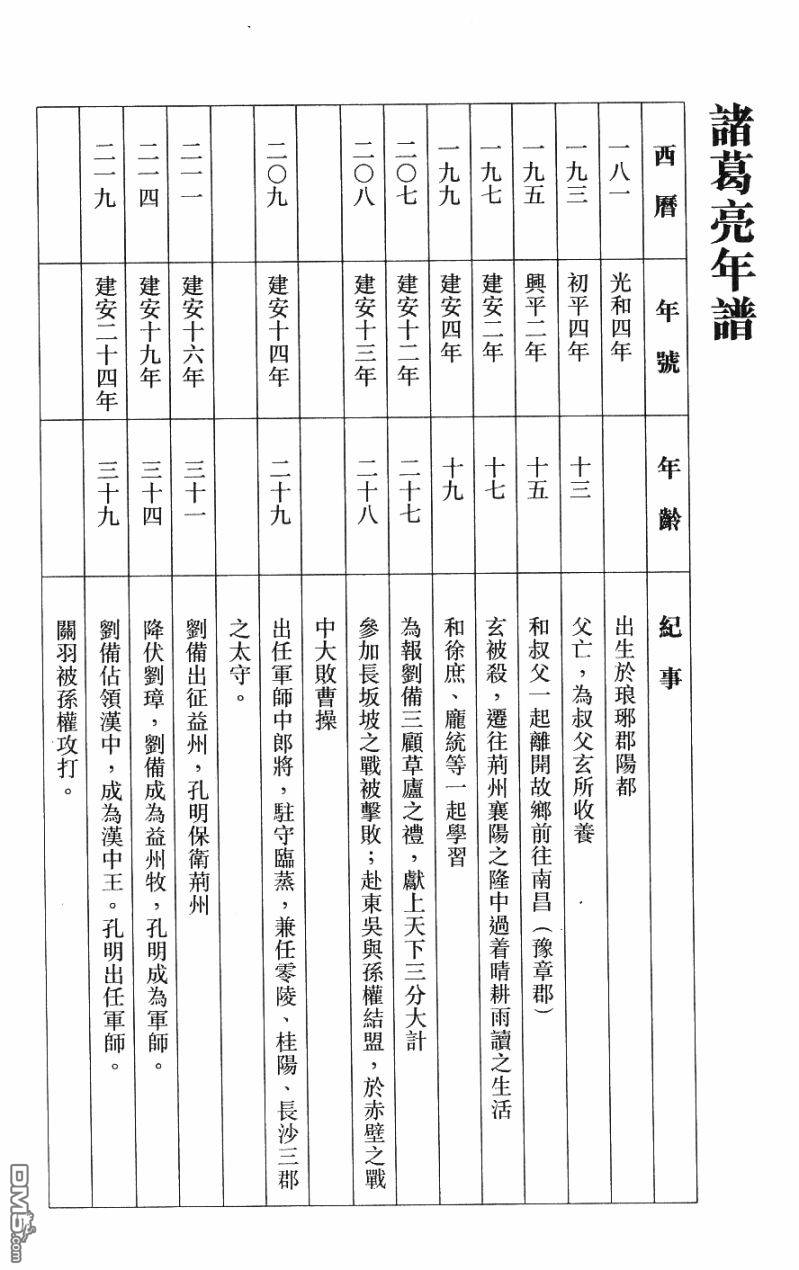 諸葛亮年譜
西曆 年號 年齡 紀事
一八一 光和四年 出生於琅琊郡陽都
一九三 初平四年 十三 父亡，為叔父玄所收養
一九五 興平二年 十五 和叔父一起離開故鄉前往南昌（豫章郡）
一九七 建安二年 十七 玄被殺，遷往荊州襄陽之隆中過着晴耕雨讀之生活
一九九 建安四年 十九 和徐庶、龐統等一起學習
二〇七 建安十二年 二十七 為報劉備三顧草廬之禮，獻上天下三分大計
二〇八 建安十三年 二十八 參加長坂坡之戰被擊敗；赴東吳與孫權結盟，於赤壁之戰
中大敗曹操
二〇九 建安十四年 二十九 出任軍師中郎將，駐守臨蒸，兼任零陵、桂陽、長沙三郡
之太守。
二一一 建安十六年 三十一 劉備出征益州，孔明保衛荊州
二一四 建安十九年 三十四 降伏劉璋，劉備成為益州牧，孔明成為軍師。
二一九 建安二十四年 三十九 劉備佔領漢中，成為漢中王。孔明出任軍師。
關羽被孫權攻打。
DM5.com